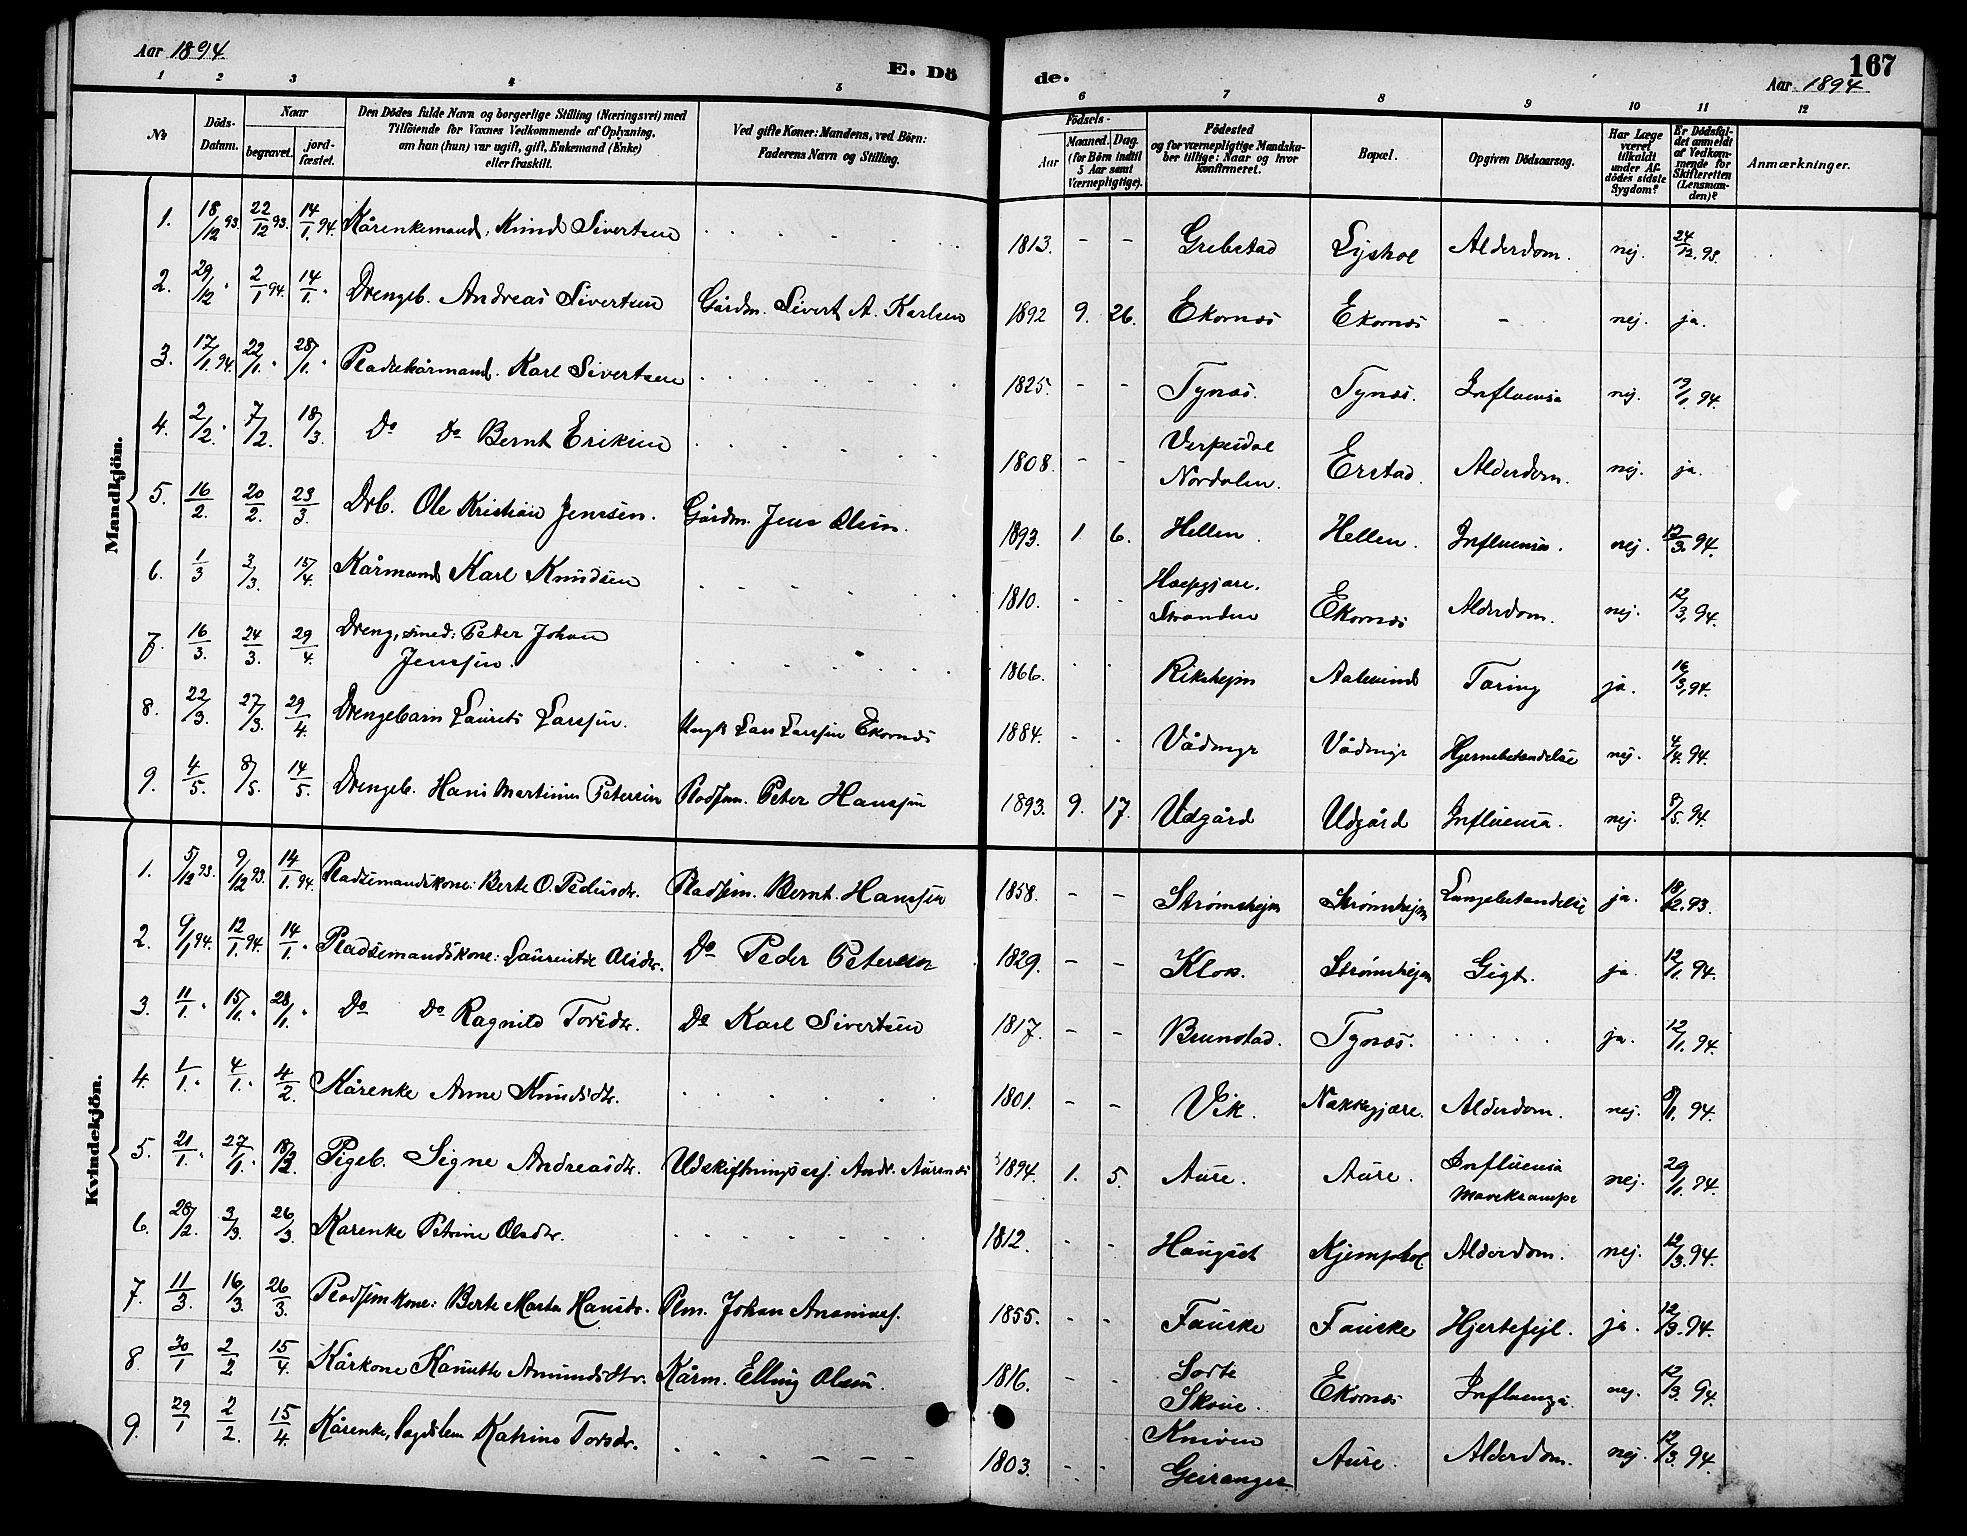 Aar 1894
E. Dö
de.
167
Aar 1894
1 2 3 4 5 6 7 8 9 10 11 12
No
Döds-
Datum.
Naar
begravet.
jord-
fæstet.
Den Dödes fulde Navn og borgerlige Stilling (Næringsvei) med
Tilföiende for Voxnes Vedkommende af Oplysning,
om han (hun) var ugift, gift, Enkemand (Enke)
eller fraskilt.
Ved gifte Koner: Mandens, ved Börn:
Faderens Navn og Stilling.
Födsels-
Aar
Maaned. Dag.
(for Börn indtil
5 Aar samt
Værnepligtige).
Födested
og for værnepligtige Mandska-
ber tillige: Naar og hvor
konfirmeret.
Bopæl.
Opgiven Dödsaarsag.
Har Læge
været
tilkaldt
under Af-
dödes sidste
Sygdom?
Er Dödsfal-
det anmeldt
af Vedkom-
mende for
Skifteretten
(Lensman-
den)?
Anmærkninger.
Mandkjön.
1. 18/12 93. 22/12 93. 14/1. 94. Kårenkemand, Knud Sivertsen 1813. - - Grebstad Lyshol Alderdom. nej. 24/12. 93.
2. 29/12 " 2/1 94. 14/1. " Drengeb. Andreas Sivertsen Gårdm. Sivert A. Karlsen 1892 9. 26. Ekornæs Ekornæs - nej. ja.
3. 17/1. 94. 22/1. " 28/1. " Pladsekårmand. Karl Sivertsen 1825. - - Tynæs. Tynæs. Influensa nej. 19/1. 94.
4. 2/2. " 7/2. 18/3. Do Do Bernt Eriksen 1808. - - Verpesdal
Nordalen. Erstad. Alderdom. nej. ja.
5. 16/2. 20/2. 23/3. Drb. Ole Kristian Jenssen. Gårdm. Jens Olsen. 1893. 1 6. Hellen. Hellen. Influensa. nej. 12/3. 94.
6. 1/3 3/3. 15/4. Kårmand Karl Knudsen 1810. - -
Stranden Ekornæs Alderdom. nej. 12/3. 94.
7. 16/3. 24/3. 29/4. Dreng, smed: Peder Johan
Jenssen. 1866. Rikshejm Aalesund Tæring ja. 16/3. 94.
8. 22/3. 27/3. 29/4. Drengebarn Laurits Larssen. Lars Larssen Ekornæs 1884. Vådmyr Vådmyr Hjernebetændelse nej. 4/4. 94.
9. 4/5. 8/5. 14/5. Drengeb. Hans Martinus Petersen Pladsm. Peter Hanssen 1893. 9. 17. Udgård Udgård Influensa. nej. 8/5. 94.
Kvindekjön.
1. 5/12 93. 9/12 93. 14/1. 94. Pladsemandskone: Berte O. Pedersdr. Pladsem. Bernt Hanssen 1858. - - Strømshejm Strømshejm Lungebetændelse ja. 18/12. 93.
2. 9/1 94. 12/1. 94. 14/1. " Pladsemandskone: Laurentse Olsdr. Do Peder Petersen 1829. - - Klok. Strømshejm Gigt. ja 12/1. 94.
3. 11/1. " 15/1. " 28/1. " Do Do Ragnild Torsdr. Do Karl Sivertsen 1817. - - Brunstad. Tynæs. ja. 12/1. 94.
4. 1/1. " 4/1. " 4/2. Kårenke Anne Knudsdtr. 1801. - - Vik. Nakkegjære. Alderdom. nej. 8/1. 94.
5. 21/1. " 27/1. " 18/2. Pigeb. Signe Andreasdtr. Udskiftningsass. Andr. Aurenæs 1894. 1. 5. Aure. Aure. Influensa
Mavekrampe nej. 29/1. 94.
6. 28/2. 3/3. 26/3. Kårenke Petrine Olsdtr. 1812. - - Haugset Kjempehol Alderdom. nej. 12/3. 94.
7. 11/3. 16/3. 26/3. Pladsemkone: Berte Marta Hansdr. Plm. Johan Ananiass. 1855. - - Fauske Fauske Hjertefejl. ja. 12/3. 94.
8. 30/1 2/2 15/4. Kårkone Kanutte Amundsdtr. Kårm. Elling Olsen. 1816. - - Sorte
Skoue. Ekornæs Influenza. nej. 12/3. 94.
9. 29/1 2/2. 15/4. Kårenke, lagdslem Katrine Torsdr. 1803. - - Kniven
Geiranger Aure. Alderdom. nej. 12/3. 94.